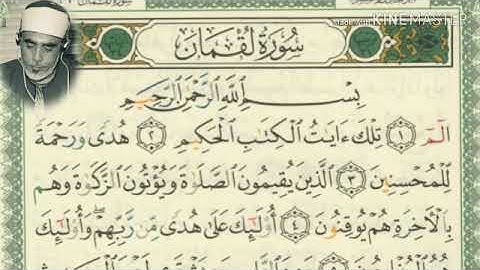 made with KINEMASTER
سُورَةُ لُقْمَانَ
بِسْمِ ٱللَّهِ ٱلرَّحْمَٰنِ ٱلرَّحِيمِ
الٓمٓ ١ تِلْكَ ءَايَٰتُ ٱلْكِتَٰبِ ٱلْحَكِيمِ ٢ هُدًى وَرَحْمَةً
لِّلْمُحْسِنِينَ ٣ ٱلَّذِينَ يُقِيمُونَ ٱلصَّلَوٰةَ وَيُؤْتُونَ ٱلزَّكَوٰةَ وَهُم
بِٱلْءَاخِرَةِ هُمْ يُوقِنُونَ ٤ أُو۟لَٰٓئِكَ عَلَىٰ هُدًى مِّن رَّبِّهِمْ ۖ وَأُو۟لَٰٓئِكَ